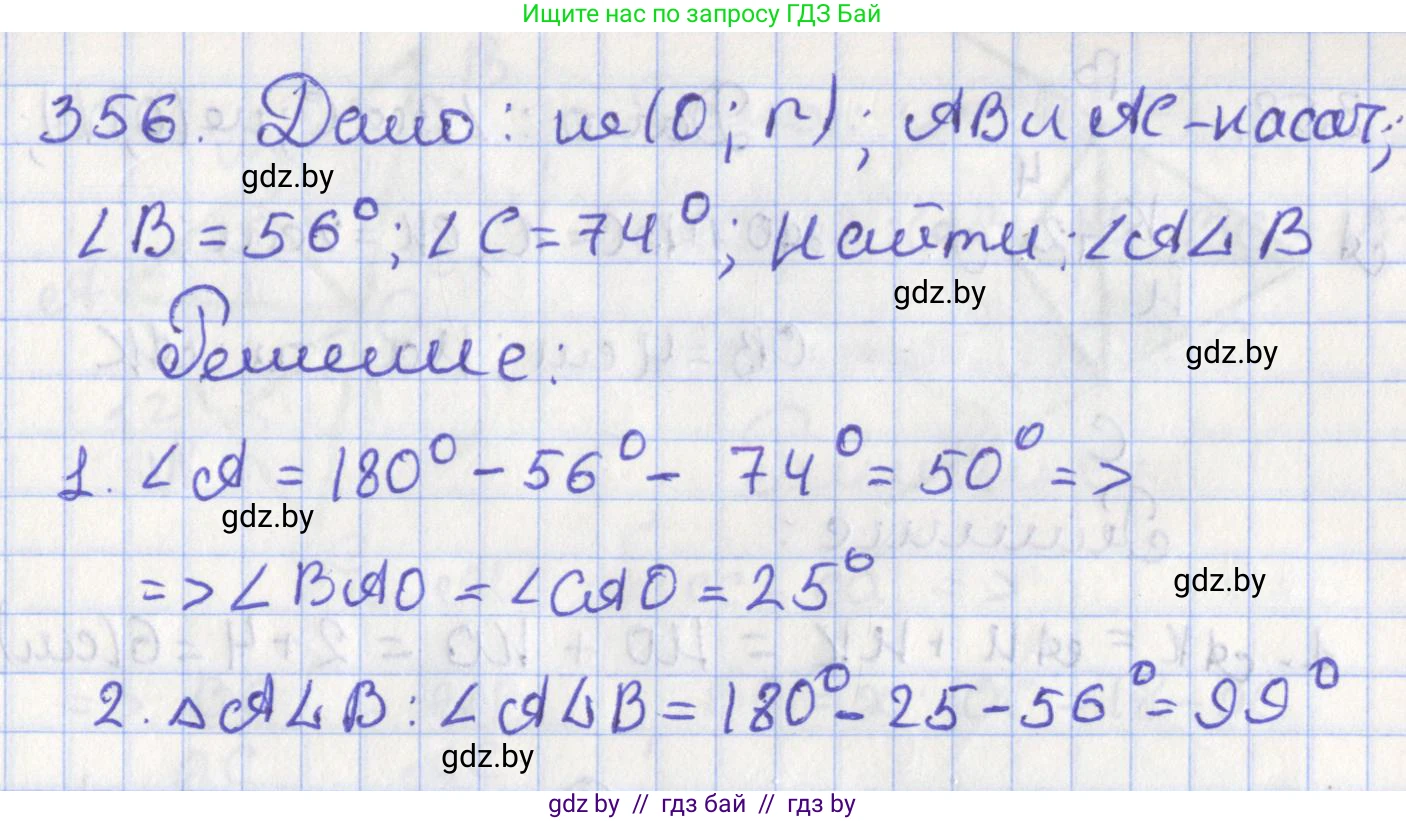 Ищите нас по запросу ГДЗ Бай
356. Дано: w(O; r); AB и AC - касат;
gdz.by
∠B = 56°; ∠C = 74°; Найти: ∠ALB
gdz.by
Решение:
gdz.by
1. ∠A = 180° - 56° - 74° = 50° =>
gdz.by
=> ∠BAO = ∠CAO = 25°
gdz.by
2. △ALB: ∠ALB = 180° - 25 - 56° = 99°
gdz.by
gdz by // гдз бай // гдз by